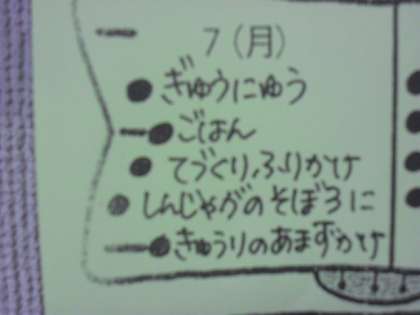 7（月）
ぎゅうにゅう
ごはん
てづくりふりかけ
しんじゃがのそぼろに
きゅうりのあまずづけ